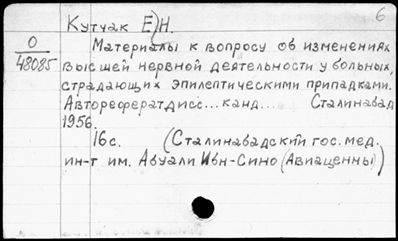 6
Кутчак Е)Н.
О
48085
Материалы к вопросу об изменениях
высшей нервной деятельности у больных,
страдающих эпилептическими припадками.
Автореферат дисс... канд... Сталинабад
1956.
16с. (Сталинабадский гос. мед.
ин-т им. Абуали Ибн-Сино (Авиаценны)